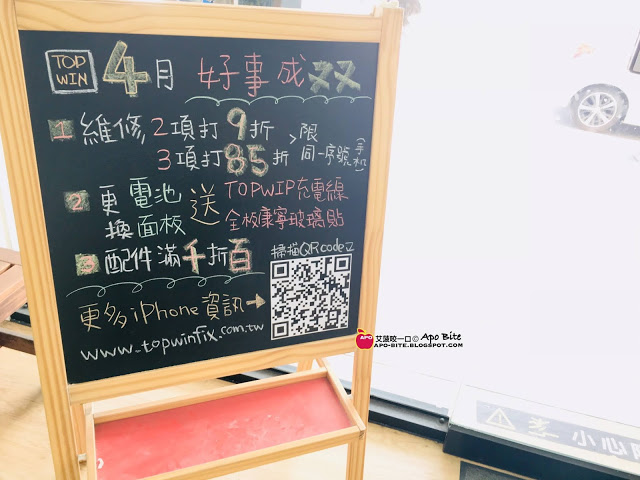 TOP WIN 4月 好事成双
1 維修2項打9折 >限
3項打85折 同一序號(手机)
2 更換 電池 送 TOPWIP充電線
面板 全板康寧玻璃貼
3 配件滿千折百
掃描QRcode
更多iPhone資訊→
www.topwinfix.com.tw
艾菠咬一口© Apo Bite
APO-BITE.BLOGSPOT.COM
小心